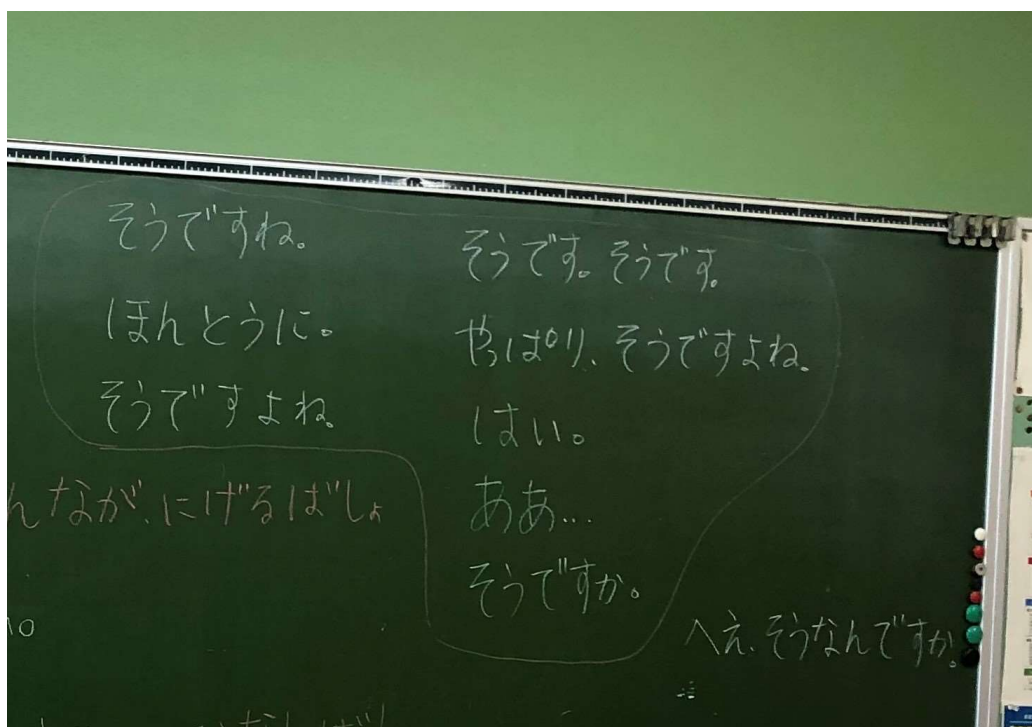 そうですね。
ほんとうに。
そうですよね。
そうです。そうです。
やっぱり、そうですよね。
はい。
ああ…
そうですか。
んなが、にげるばしょ
へえ、そうなんですか。